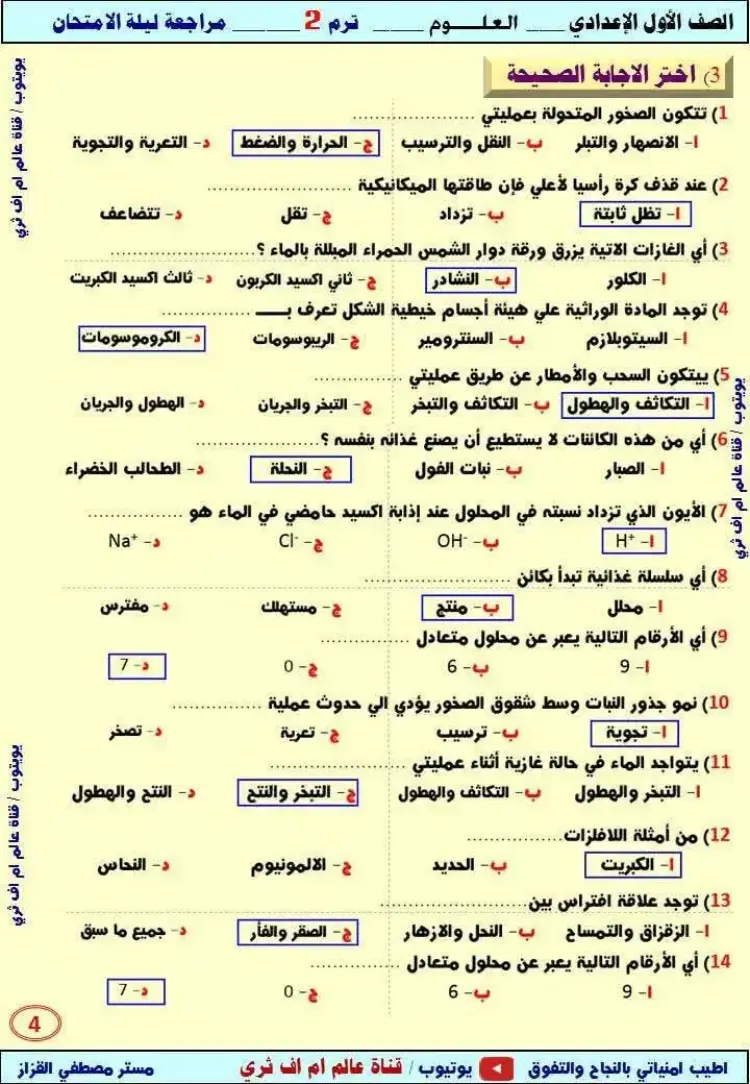 الصف الأول الإعدادي ___ العلـــوم ____ ترم 2 _____ مراجعة ليلة الامتحان
3) اختر الاجابة الصحيحة
1) تتكون الصخور المتحولة بعمليتي ......................
ا- الانصهار والتبلر ب- النقل والترسيب ج- الحرارة والضغط د- التعرية والتجوية
2) عند قذف كرة رأسيا لأعلي فإن طاقتها الميكانيكية ..........................
ا- تظل ثابتة ب- تزداد ج- تقل د- تتضاعف
3) أي الغازات الاتية يزرق ورقة دوار الشمس الحمراء المبللة بالماء ؟..........................
ا- الكلور ب- النشادر ج- ثاني اكسيد الكربون د- ثالث اكسيد الكبريت
4) توجد المادة الوراثية علي هيئة أجسام خيطية الشكل تعرف بـــــ ................
ا- السيتوبلازم ب- السنترومير ج- الريبوسومات د- الكروموسومات
5) ييتكون السحب والأمطار عن طريق عمليتي ................
ا- التكاثف والهطول ب- التكاثف والتبخر ج- التبخر والجريان د- الهطول والجريان
6) أي من هذه الكائنات لا يستطيع أن يصنع غذائه بنفسه ؟......................
ا- الصبار ب- نبات الفول ج- النحلة د- الطحالب الخضراء
7) الأيون الذي تزداد نسبته في المحلول عند إذابة اكسيد حامضي في الماء هو .................
ا- H⁺ ب- OH⁻ ج- Cl⁻ د- Na⁺
8) أي سلسلة غذائية تبدأ بكائن ..........................
ا- محلل ب- منتج ج- مستهلك د- مفترس
9) أي الأرقام التالية يعبر عن محلول متعادل ................
ا- 9 ب- 6 ج- 0 د- 7
10) نمو جذور النبات وسط شقوق الصخور يؤدي الي حدوث عملية ................
ا- تجوية ب- ترسيب ج- تعرية د- تصخر
11) يتواجد الماء في حالة غازية أثناء عمليتي ........................
ا- التبخر والهطول ب- التكاثف والهطول ج- التبخر والنتح د- النتح والهطول
12) من أمثلة اللافلزات.................
ا- الكبريت ب- الحديد ج- الالمونيوم د- النحاس
13) توجد علاقة افتراس بين..........................
ا- الزقزاق والتمساح ب- النحل والازهار ج- الصقر والفأر د- جميع ما سبق
14) أي الأرقام التالية يعبر عن محلول متعادل ................
ا- 9 ب- 6 ج- 0 د- 7
4
اطيب امنياتي بالنجاح والتفوق يوتيوب / قناة عالم ام اف ثري مستر مصطفي القزاز
يوتيوب / قناة عالم ام اف ثري
يوتيوب / قناة عالم ام اف ثري
يوتيوب / قناة عالم ام اف ثري